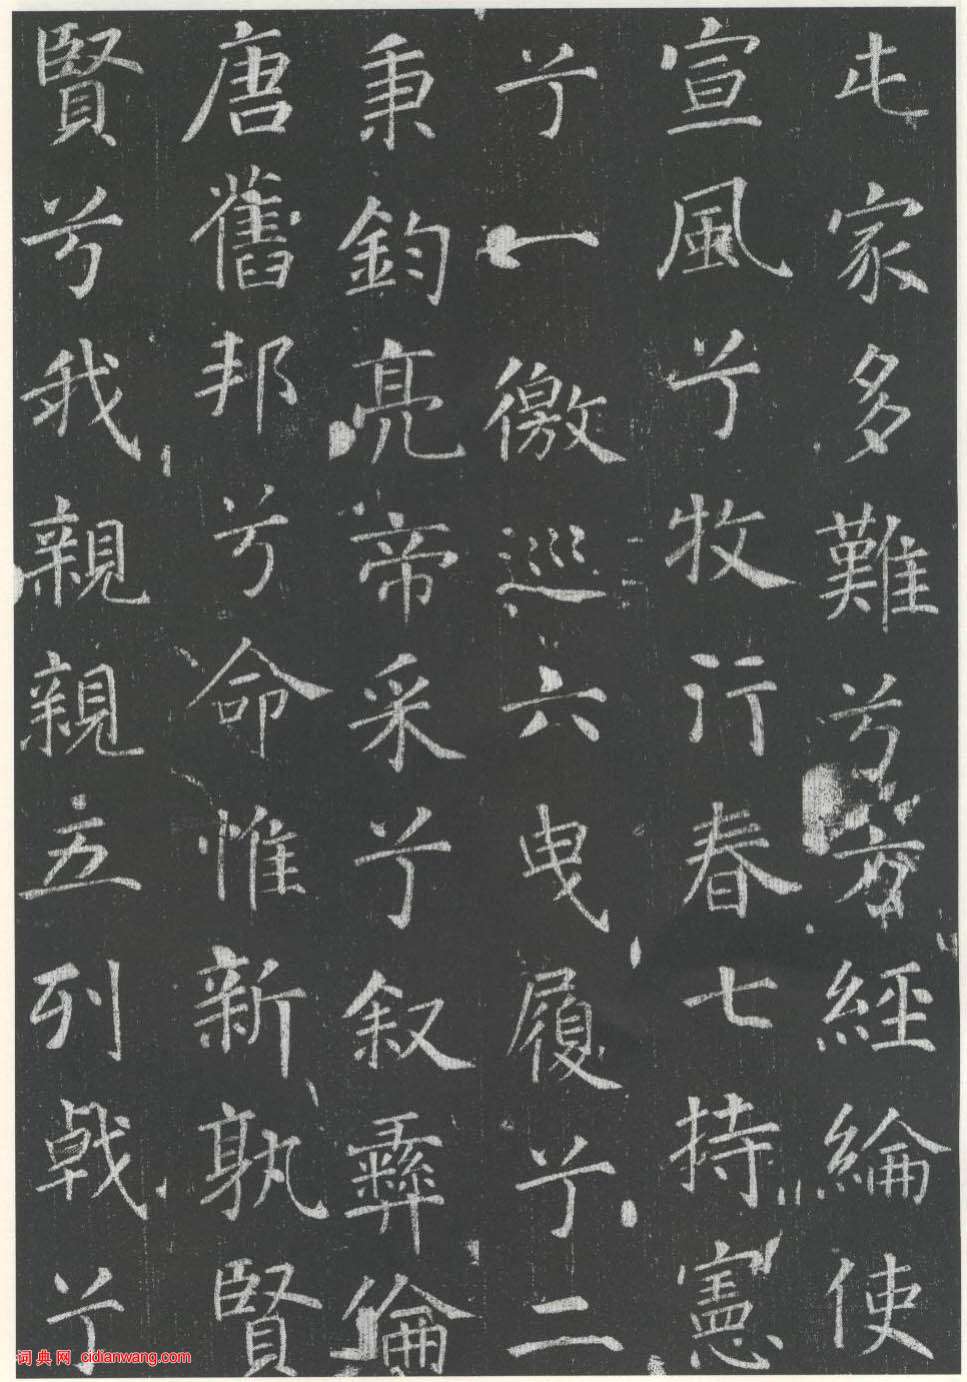 屯家多難兮方經綸使
宣風兮牧行春七持憲
兮一徼巡六曳履兮二
秉鈞亮帝采兮叙彞倫
唐舊邦兮命惟新孰賢
賢兮我親親立列戟兮
词典网 cidianwang.com